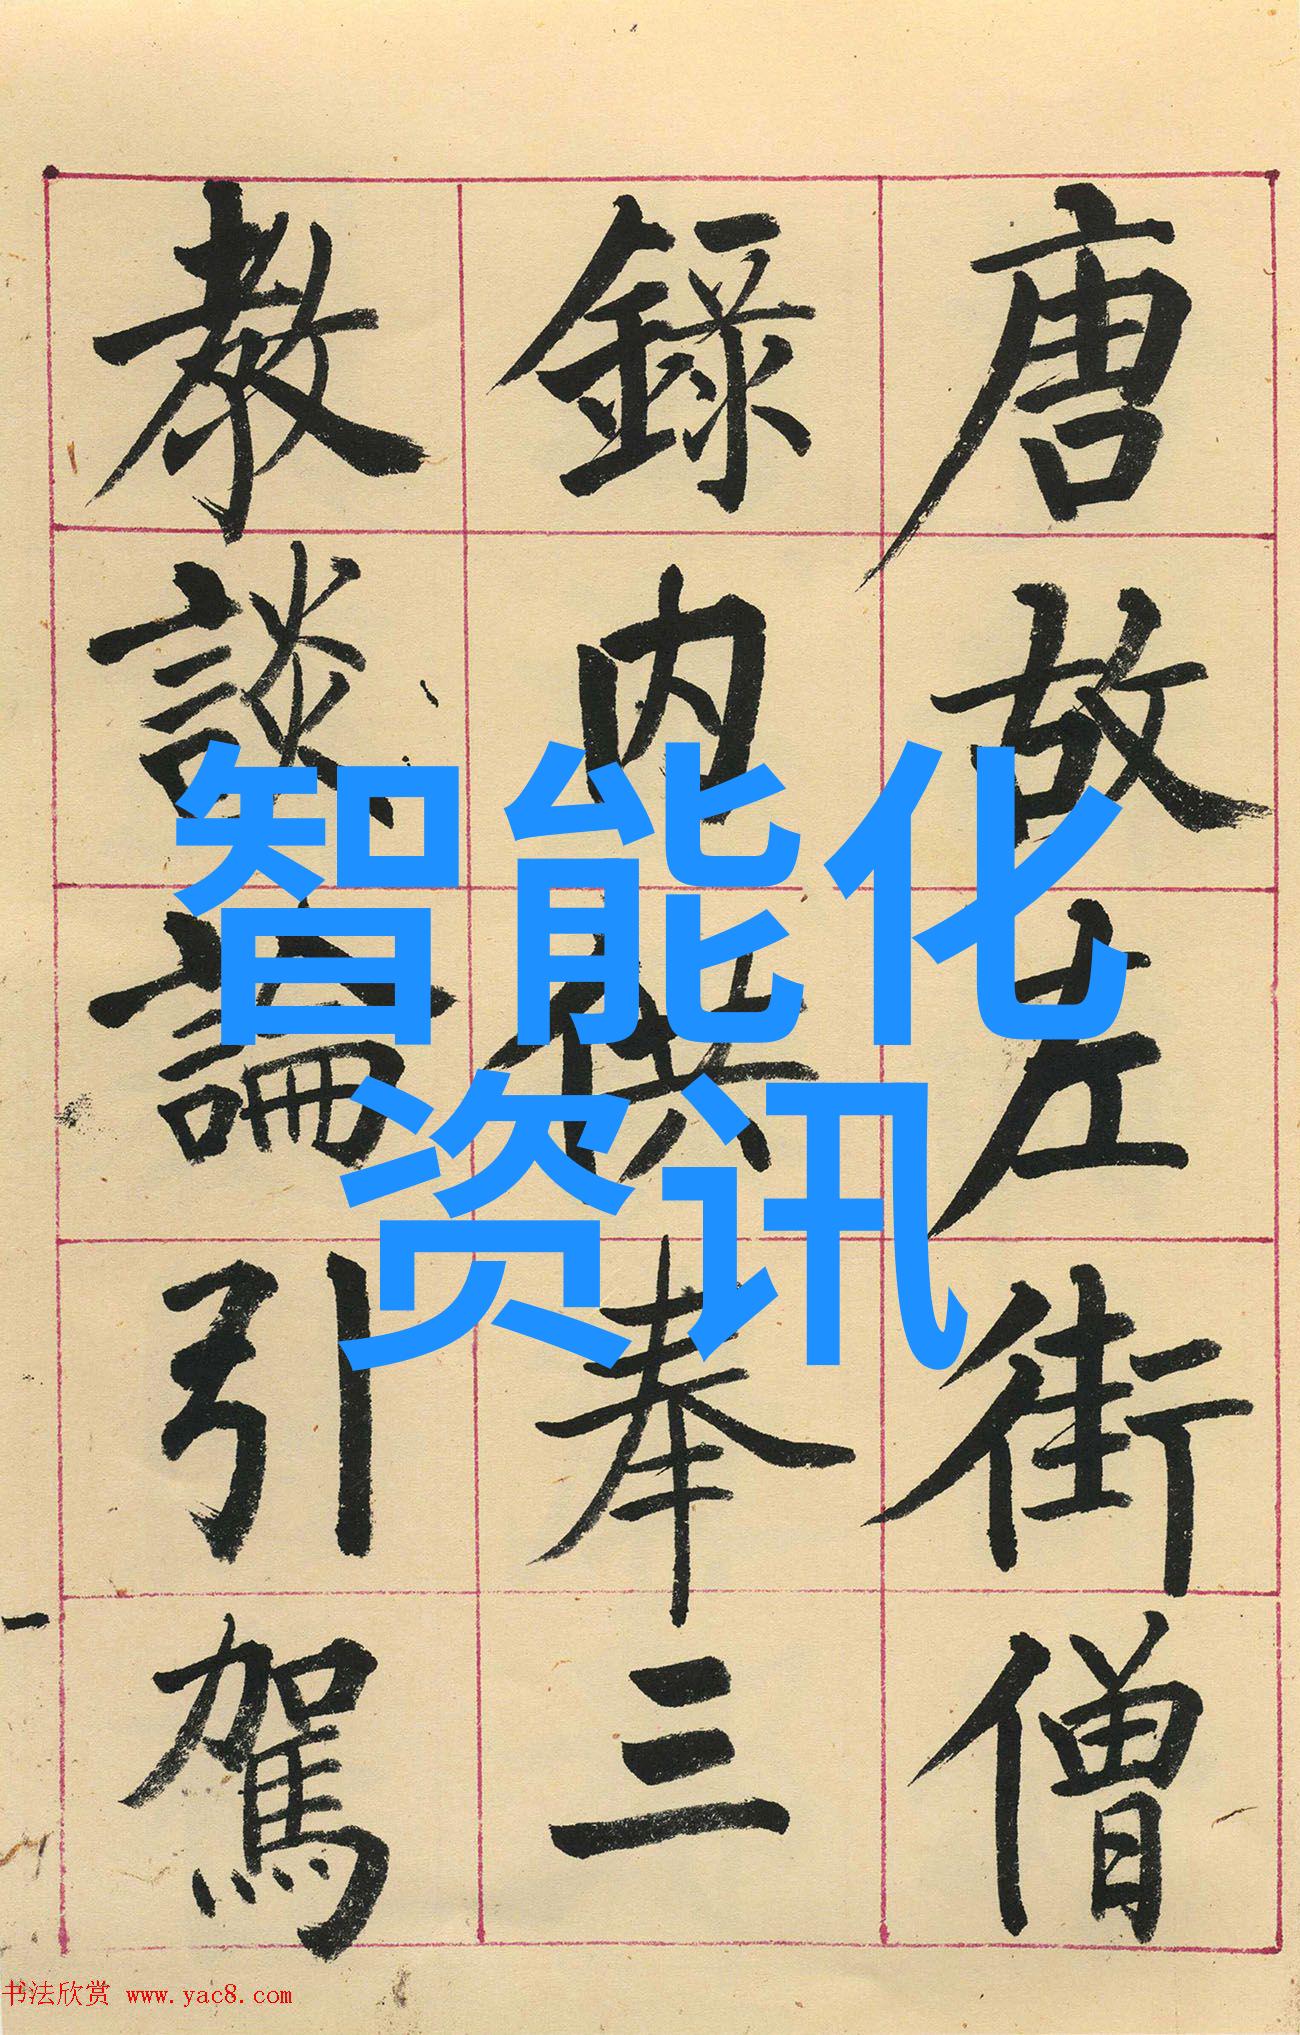 唐故左街僧
錄内供奉三
教談論引駕
智能化
资讯
书法欣赏 www.yac8.com